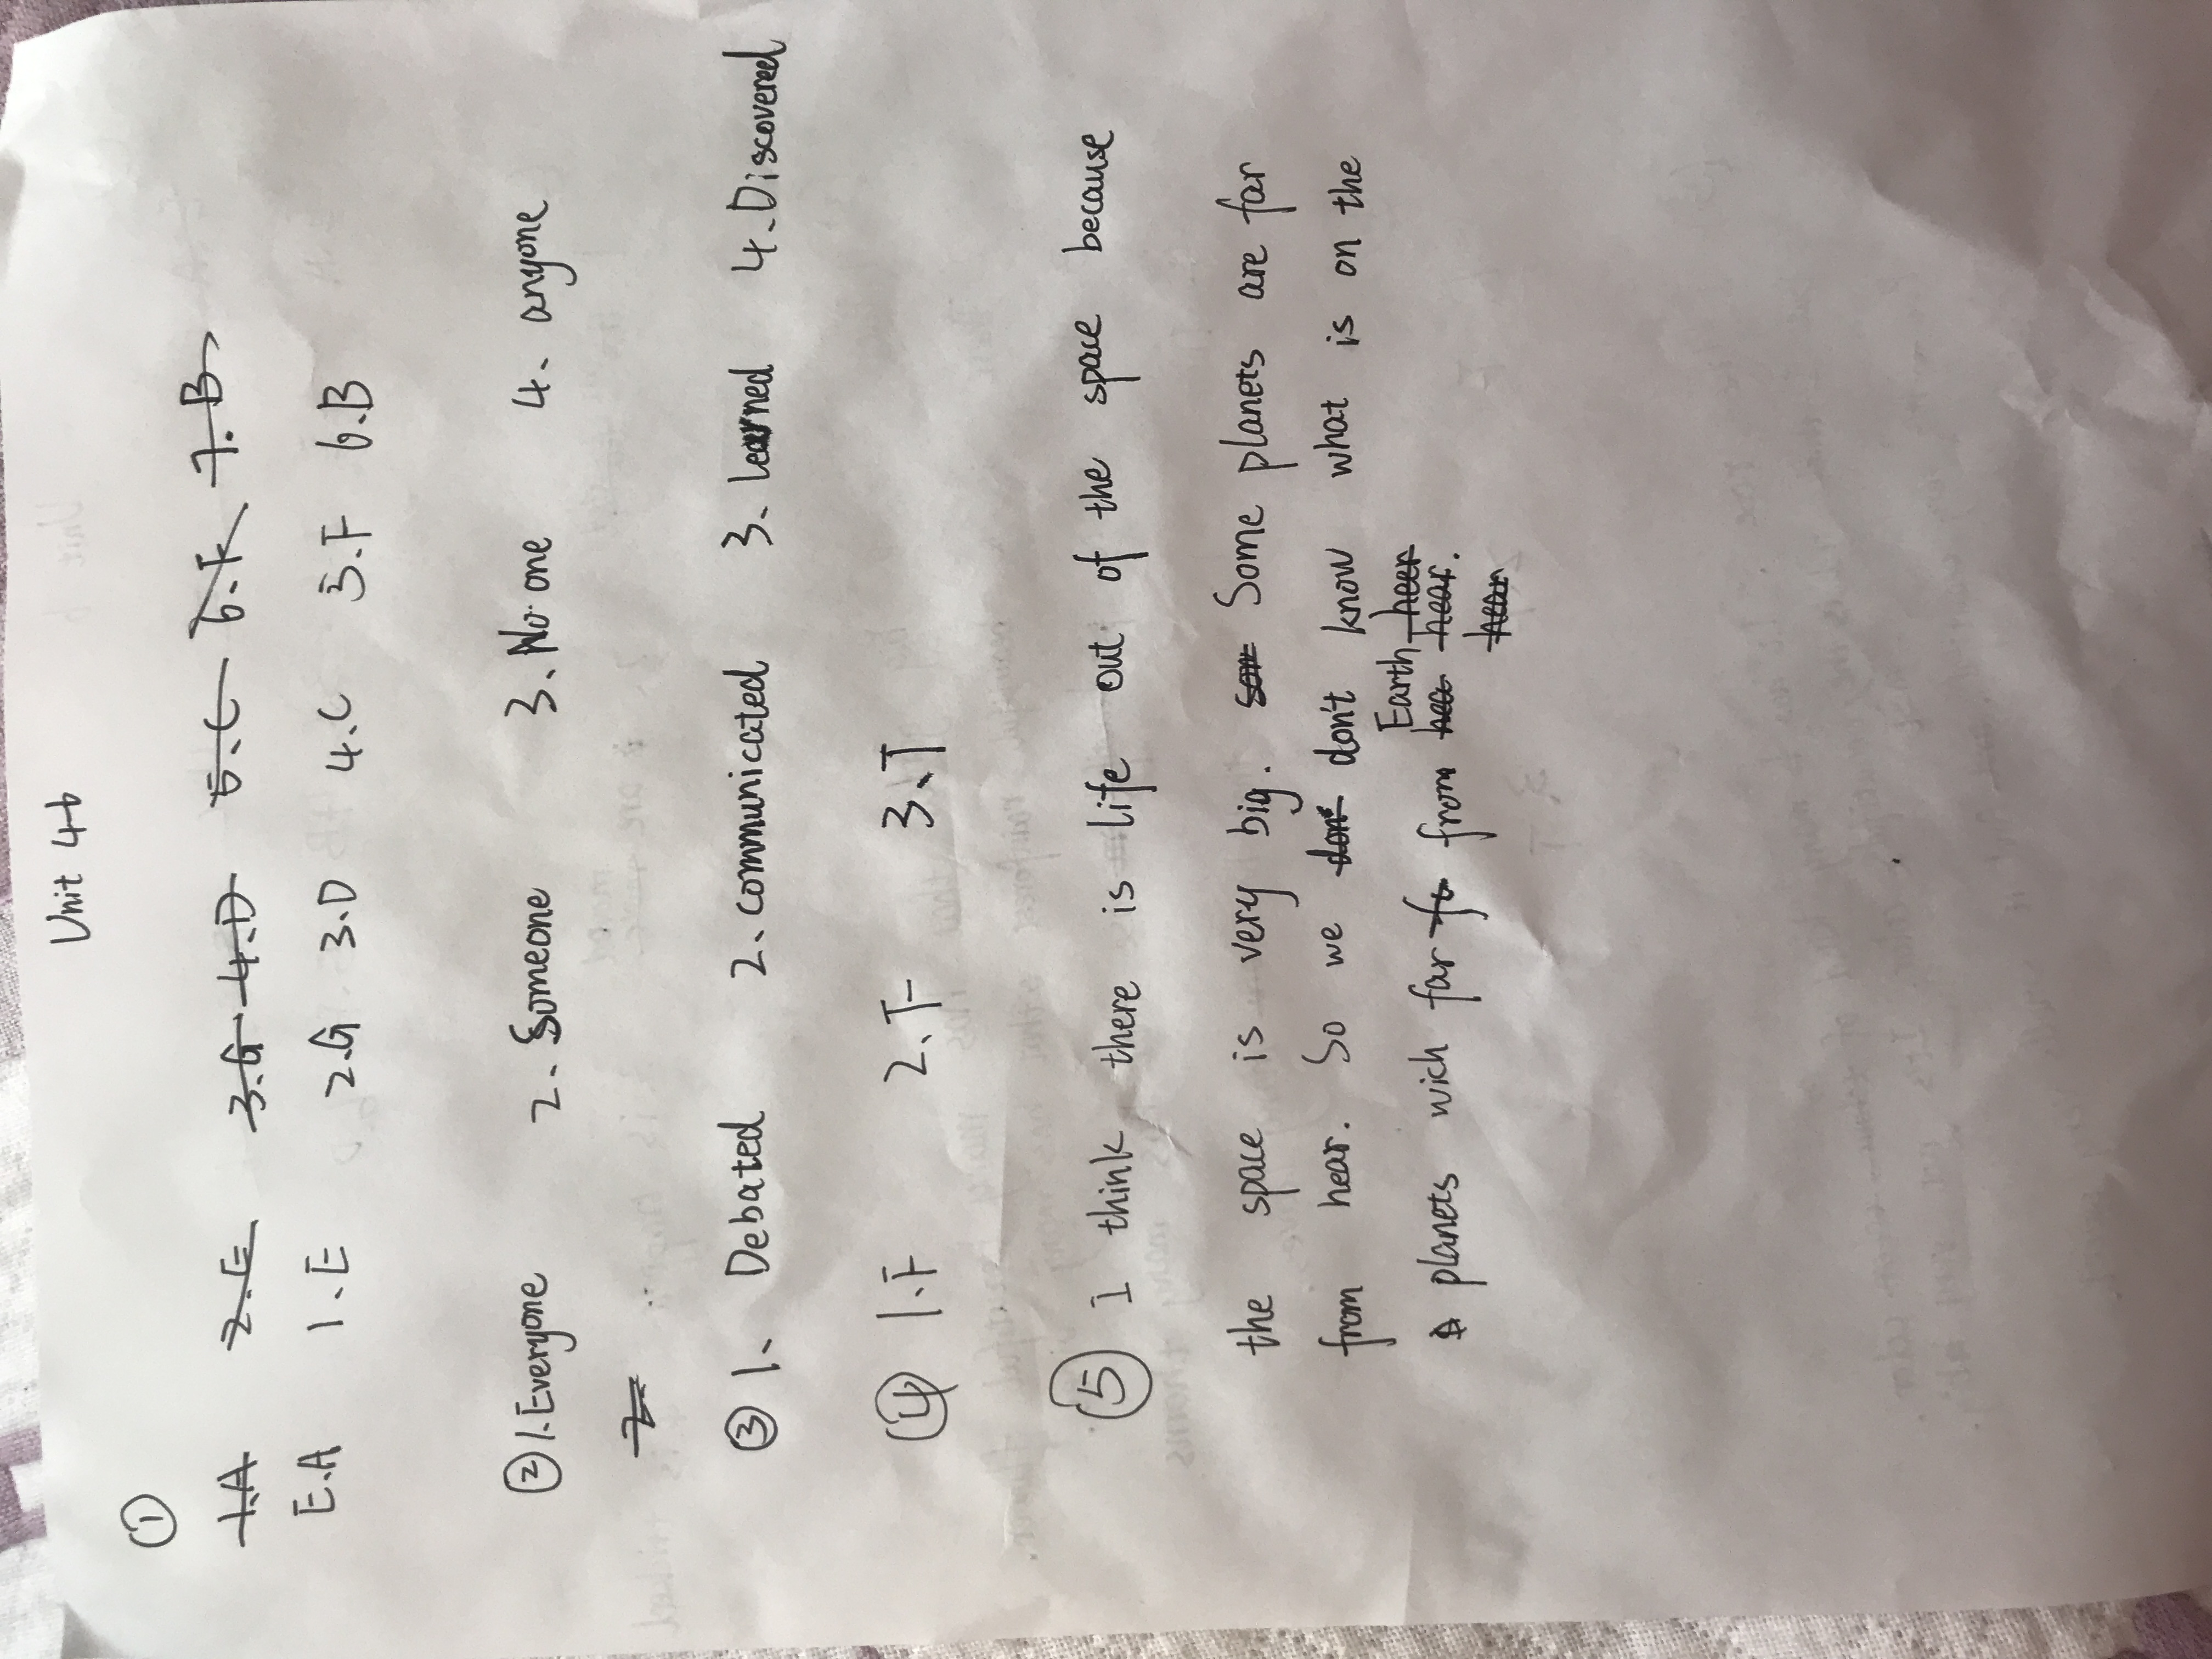 Unit 4b
①
1.A 2.E 3.G 4.D 5.C 6.F 7.B
E.A 1.E 2.G 3.D 4.C 5.F 6.B
② 1.Everyone 2.Someone 3.No one 4.anyone
2.
③ 1. Debated 2.communicated 3.learned 4.Discovered
④ 1.F 2.F 3.T
⑤ I think there is life out of the space because
the space is very big. som Some planets are far
from hear. So we don' don't know what is on the
planets wich far fo from hea Earth heer hear.
hear